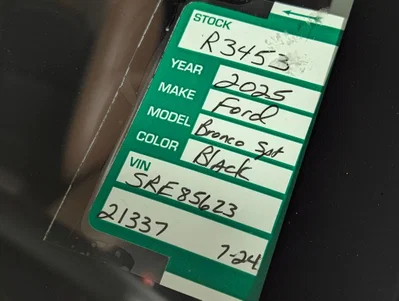 STOCK
R3453
YEAR 2025
MAKE Ford
MODEL Bronco Spt
COLOR BLACK
VIN
SRE85623
21337 7-24